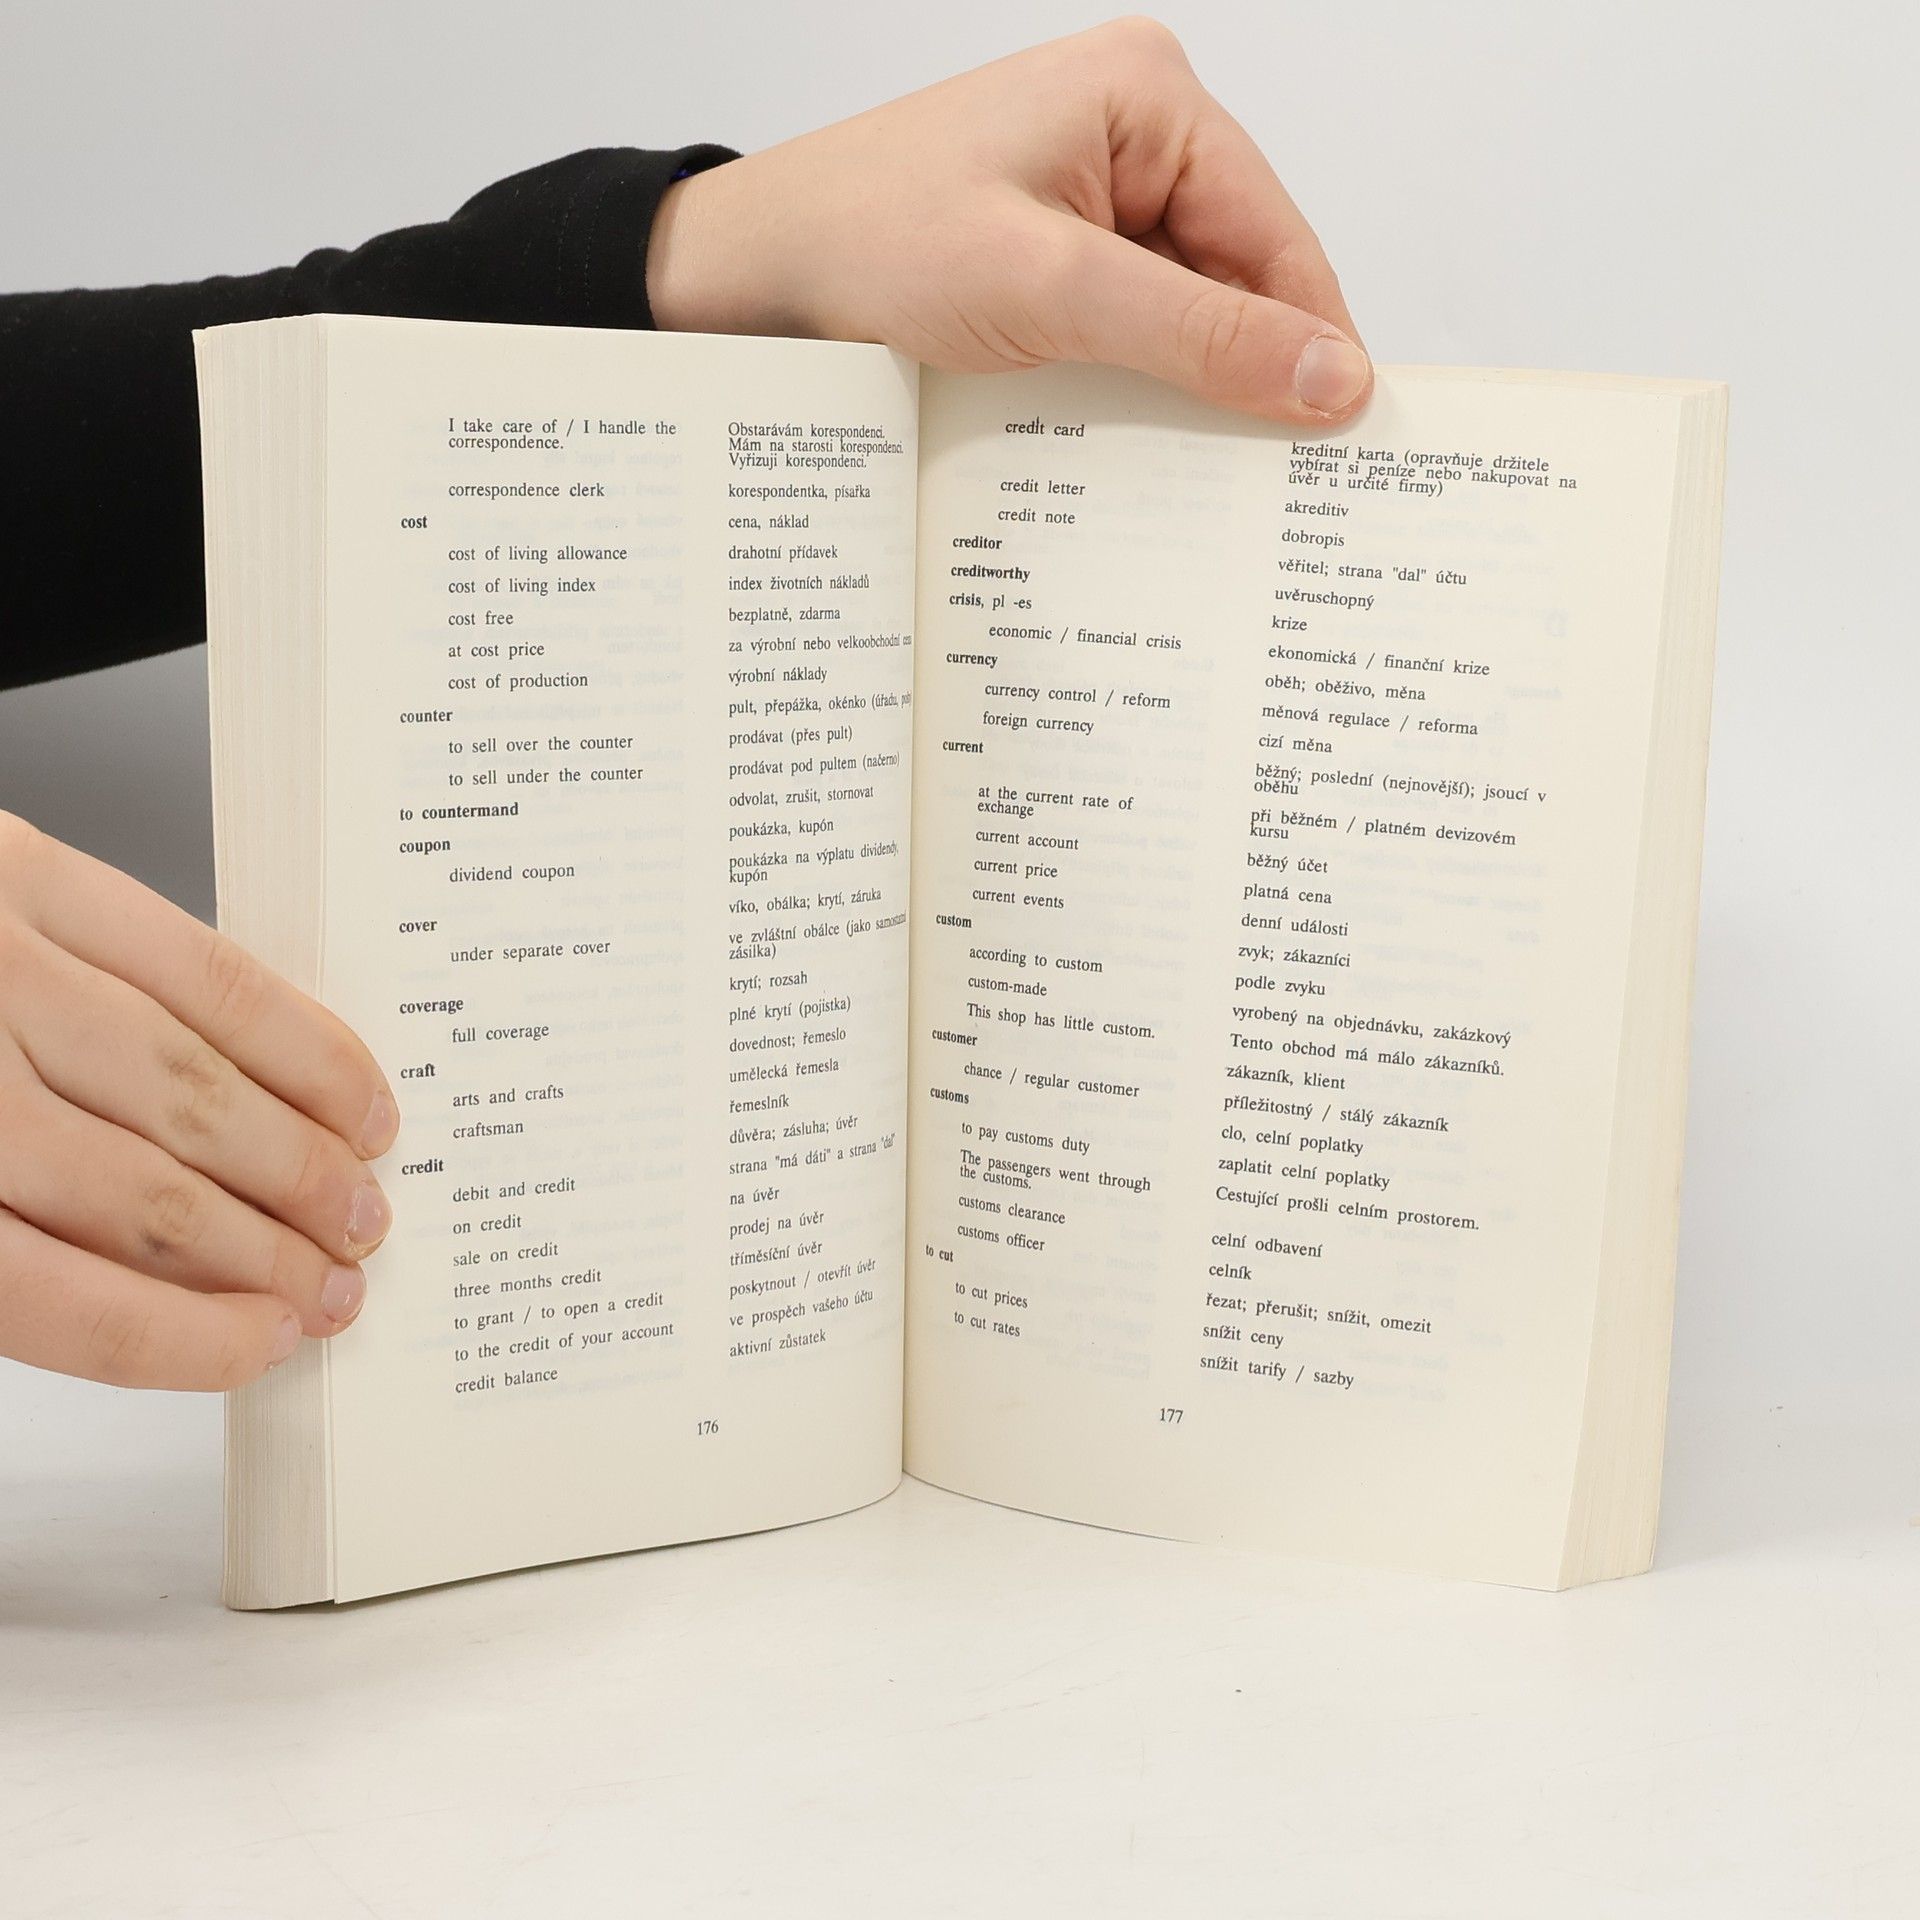 I take care of / I handle the
correspondence.
Obstarávám korespondenci.
Mám na starosti korespondenci.
Vyřizuji korespondenci.
correspondence clerk korespondentka, písařka
cost cena, náklad
cost of living allowance drahotní přídavek
cost of living index index životních nákladů
cost free bezplatně, zdarma
at cost price za výrobní nebo velkoobchodní
cost of production výrobní náklady
counter pult, přepážka, okénko (úřadu,
to sell over the counter prodávat (přes pult)
to sell under the counter prodávat pod pultem (načerno)
to countermand odvolat, zrušit, stornovat
coupon poukázka, kupón
dividend coupon poukázka na výplatu dividendy,
kupón
cover víko, obálka; krytí, záruka
under separate cover ve zvláštní obálce (jako
zásilka)
coverage krytí; rozsah
full coverage plné krytí (pojistka)
craft dovednost; řemeslo
arts and crafts umělecká řemesla
craftsman řemeslník
credit důvěra; zásluha; úvěr
debit and credit strana "má dáti" a strana "dal"
on credit na úvěr
sale on credit prodej na úvěr
three months credit tříměsíční úvěr
to grant / to open a credit poskytnout / otevřít úvěr
to the credit of your account ve prospěch vašeho účtu
credit balance aktivní zůstatek
176
credit card kreditní karta (opravňuje držitele
vybírat si peníze nebo nakupovat na
úvěr u určité firmy)
credit letter akreditiv
credit note dobropis
creditor věřitel; strana "dal" účtu
creditworthy uvěruschopný
crisis, pl -es krize
economic / financial crisis ekonomická / finanční krize
currency oběh; oběživo, měna
currency control / reform měnová regulace / reforma
foreign currency cizí měna
current běžný; poslední (nejnovější); jsoucí v
oběhu
at the current rate of
exchange
při běžném / platném devizovém
kursu
current account běžný účet
current price platná cena
current events denní události
custom zvyk; zákazníci
according to custom podle zvyku
custom-made vyrobený na objednávku, zakázkový
This shop has little custom. Tento obchod má málo zákazníků.
customer zákazník, klient
chance / regular customer příležitostný / stálý zákazník
customs clo, celní poplatky
to pay customs duty zaplatit celní poplatky
The passengers went through
the customs.
Cestující prošli celním prostorem.
customs clearance celní odbavení
customs officer celník
to cut řezat; přerušit; snížit, omezit
to cut prices snížit ceny
to cut rates snížit tarify / sazby
177